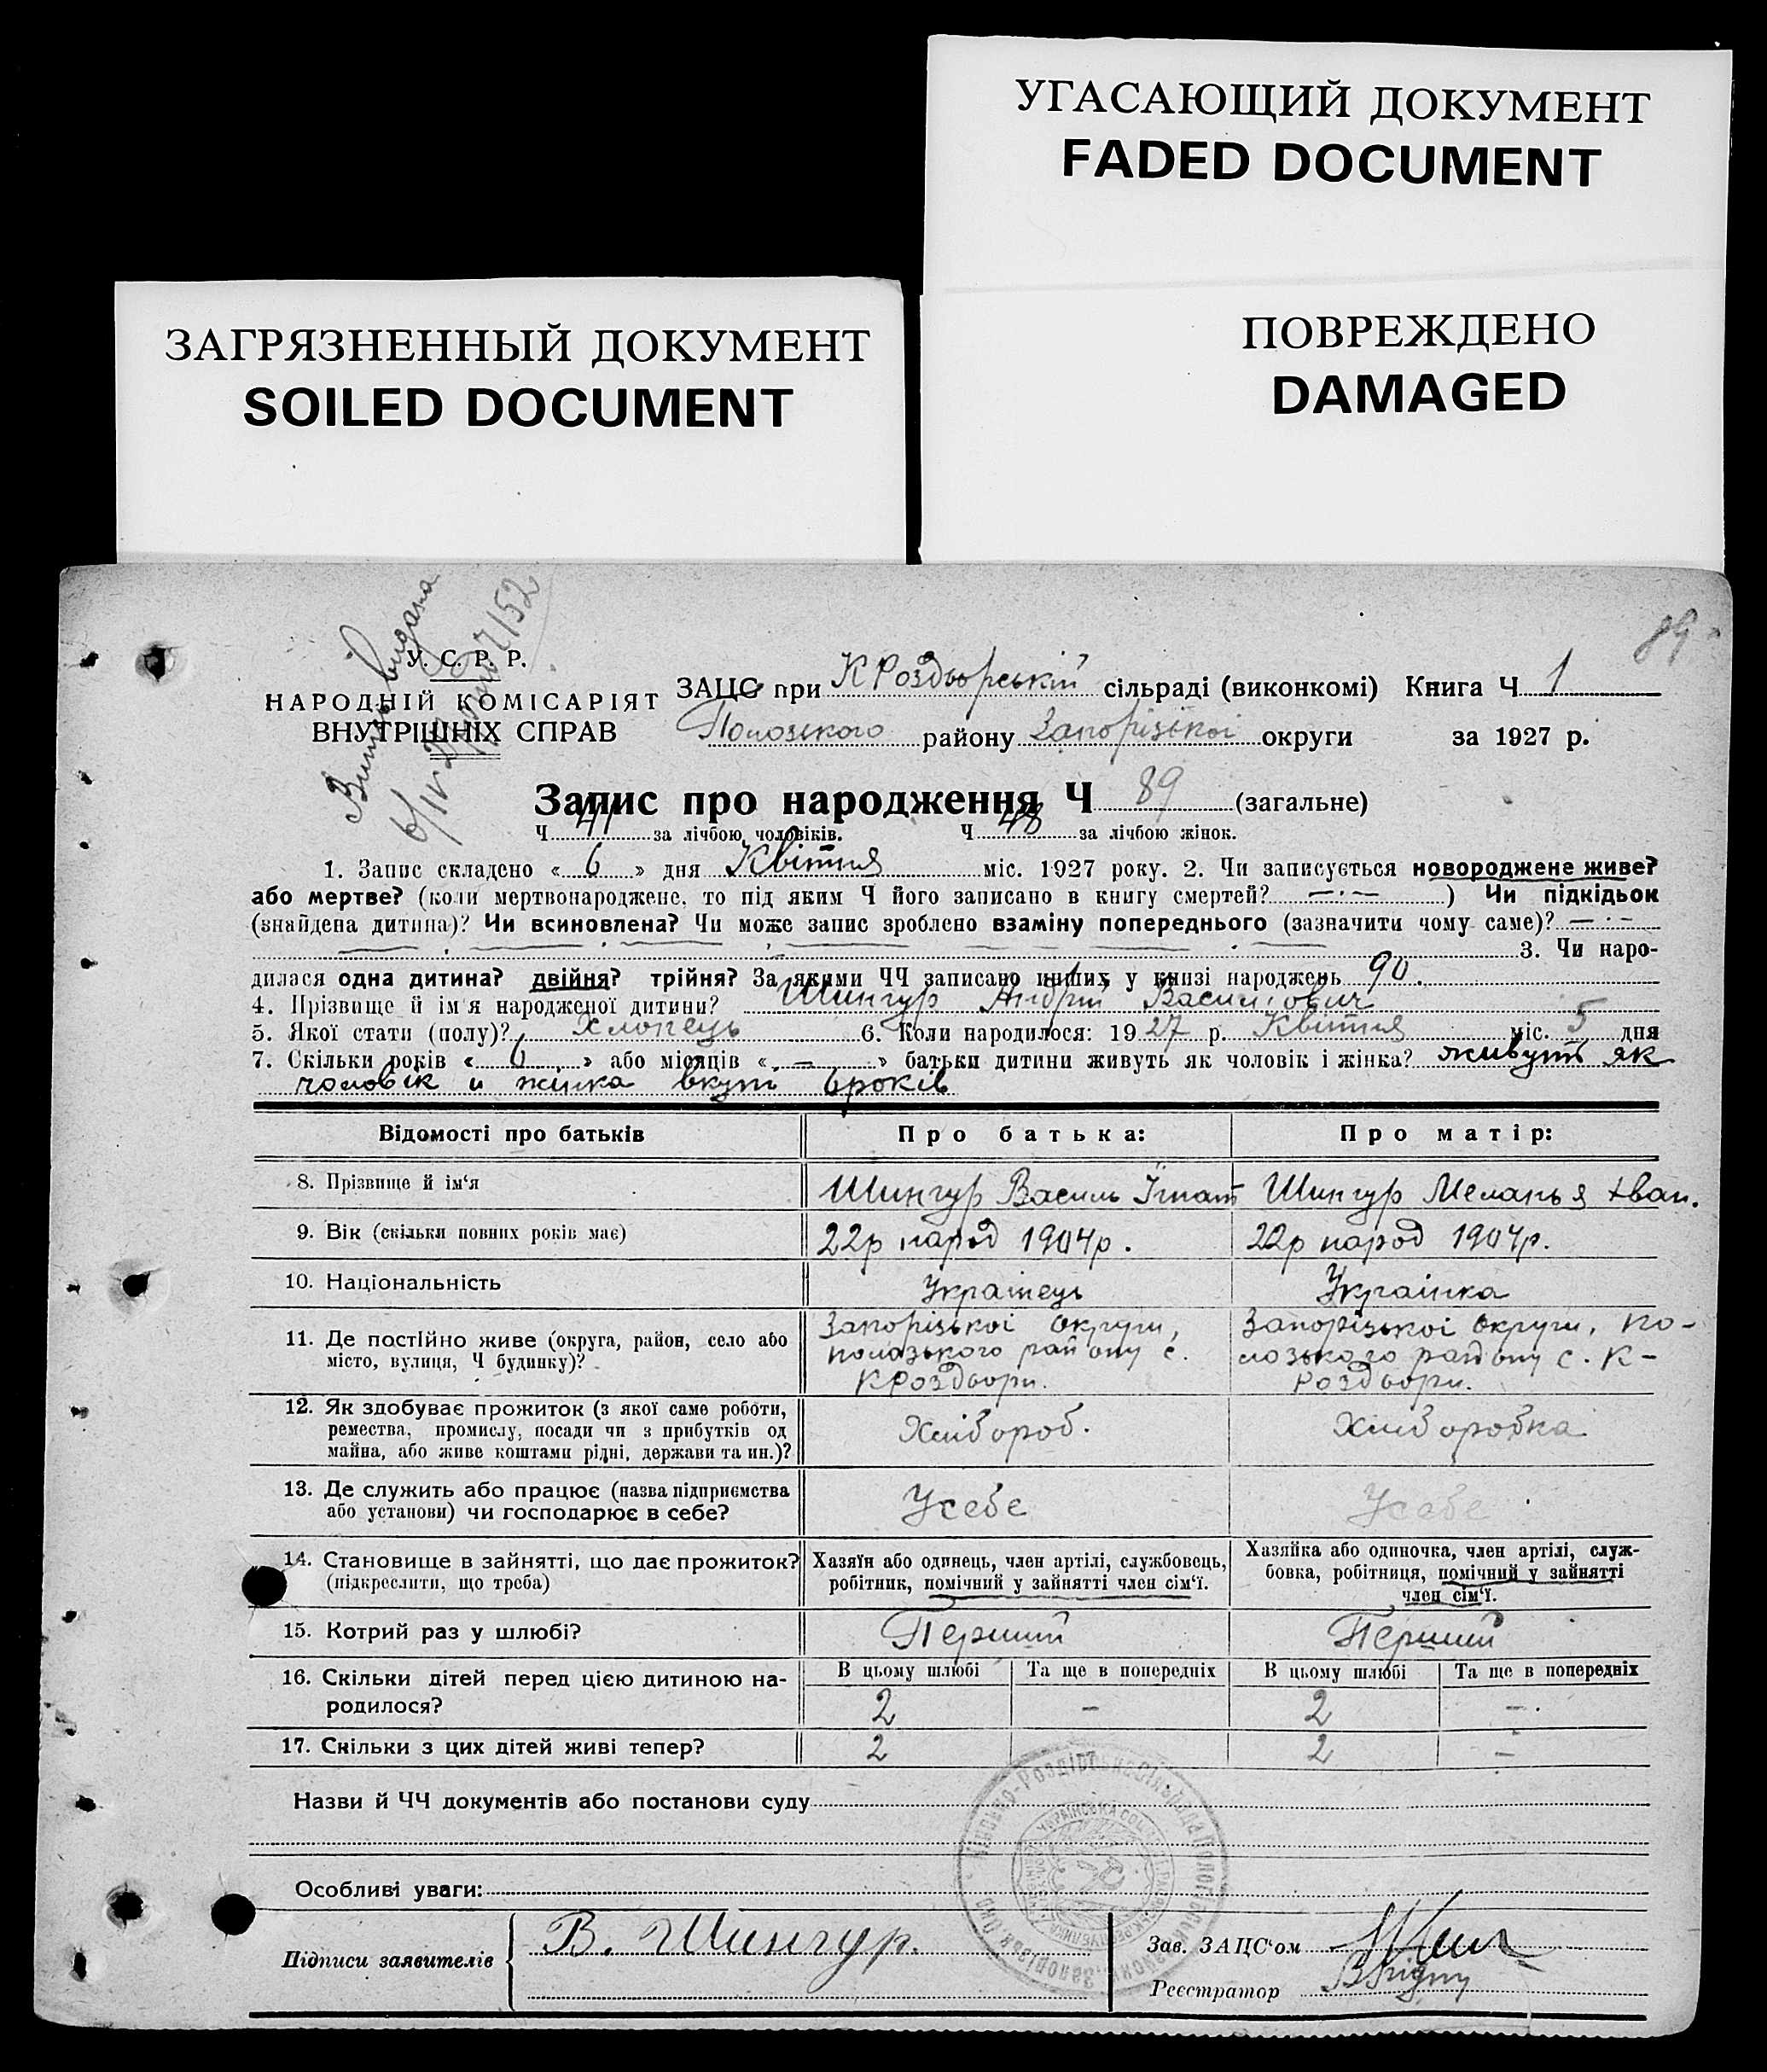 УГАСАЮЩИЙ ДОКУМЕНТ
FADED DOCUMENT
ПОВРЕЖДЕНО
DAMAGED
ЗАГРЯЗНЕННЫЙ ДОКУМЕНТ
SOILED DOCUMENT
89
видана
У. С. Р. Р.
НАРОДНІЙ КОМІСАРІЯТ
ВНУТРІШНІХ СПРАВ
ЗАЦС при КРоздорській сільраді (виконкомі) Книга Ч 1
Полозского району Запорізької округи за 1927 р.
Запис про народження Ч 89 (загальне)
Ч 41 за лічбою чоловіків. Ч 48 за лічбою жінок.
1. Запис складено « 6 » дня Квітня міс. 1927 року. 2. Чи записується новороджене живе?
або мертве? (коли мертвонароджене, то під яким Ч його записано в книгу смертей? —·— ) Чи підкідьок
(знайдена дитина)? Чи всиновлена? Чи може запис зроблено взаміну попереднього (зазначити чому саме)? —·—
3. Чи наро-
дилася одна дитина? двійня? трійня? За якими ЧЧ записано инших у книзі народжень 90.
4. Прізвище й ім'я народженої дитини? Шингур Андрій Васильович
5. Якої стати (полу)? Хлопець 6. Коли народилося: 1927 р. Квітня міс. 5 дня
7. Скільки років « 6 » або місяців « — » батьки дитини живуть як чоловік і жінка? живуть як
чоловік и жінка вкуп 6 років
Відомості про батьків Про батька: Про матір:
8. Прізвище й ім'я Шингур Василь Ігнат Шингур Меланья Іван.
9. Вік (скільки повних років має) 22р народ 1904р. 22р народ 1904р.
10. Національність Українець Українка
11. Де постійно живе (округа, район, село або
місто, вулиця, Ч будинку)?
Запорізької округи,
полозького району с.
КРоздори.
Запорізької округи, по-
лозького району с. К-
роздори.
12. Як здобуває прожиток (з якої саме роботи,
ремества, промислу, посади чи з прибутків од
майна, або живе коштами рідні, держави та ин.)?
Хлібороб. Хлиборобка
13. Де служить або працює (назва підприємства
або установи) чи господарює в себе?
Усебе Усебе
14. Становище в зайнятті, що дає прожиток?
(підкреслити, що треба)
Хазяїн або одинець, член артілі, службовець,
робітник, помічний у зайнятті член сім'ї.
Хазяйка або одиночка, член артілі, служ-
бовка, робітниця, помічний у зайнятті
член сім'ї.
15. Котрий раз у шлюбі? Перший Перший
16. Скільки дітей перед цією дитиною на-
родилося?
В цьому шлюбі Та ще в попередніх В цьому шлюбі Та ще в попередніх
2 – 2 –
17. Скільки з цих дітей живі тепер? 2 2 –
Назви й ЧЧ документів або постанови суду
Особливі уваги:
Підписи заявителів В. Шингур.
Зав. ЗАЦС'ом
Реєстратор